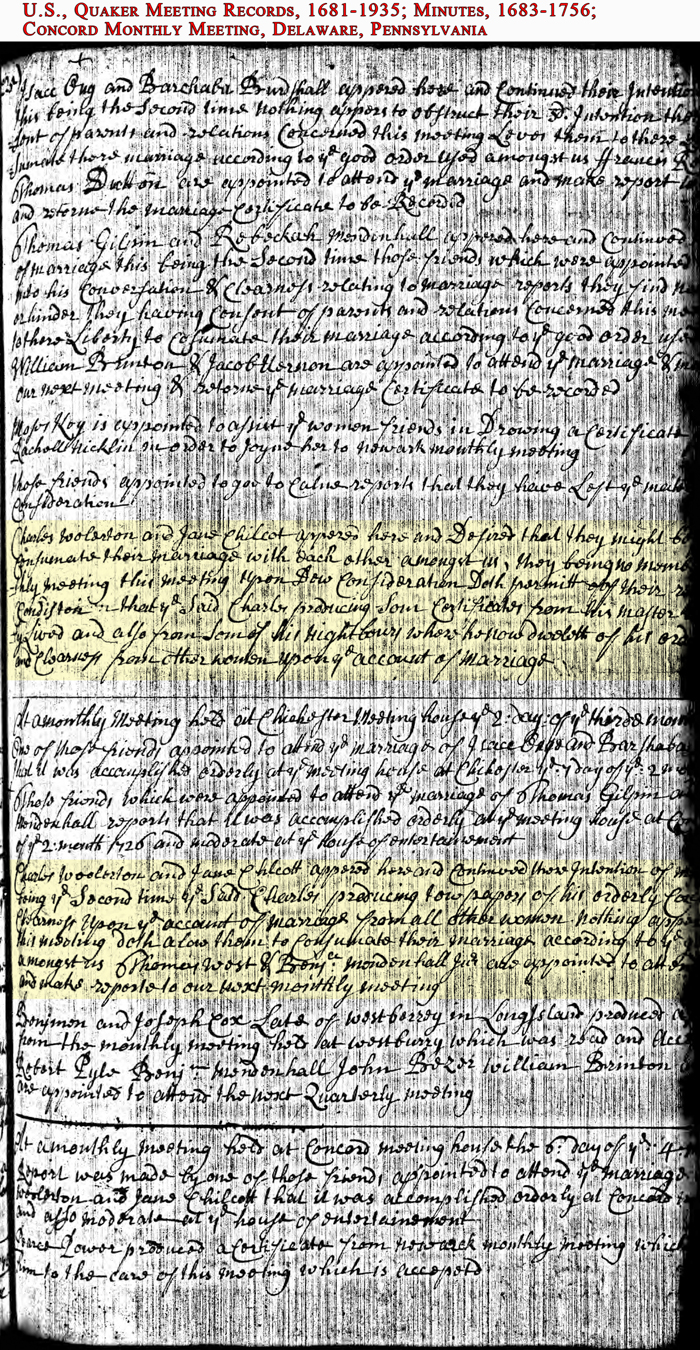 U.S., Quaker Meeting Records, 1681-1935; Minutes, 1683-1756;
Concord Monthly Meeting, Delaware, Pennsylvania
and Barshaba appered here and Continued their Intention
this being the Second time nothing appers to obstruct their sd. Intention
of parents and relations Concerned this meeting Leves them to there
there marriage according to ye good order used amongst us
Thomas Dutton are appointed to attend ye marriage and make report
and retorne the marriage Certificate to be Recorded
Thomas Gilpin and Rebeckah Mendenhall appered here and Continued
of marriage this being the Second time those friends which were appointed
into his Conversation & Clearness relating to marriage reports they find
or hinder they having Consent of parents and relations Concerned this
to there Liberty to Consumate their marriage according to ye good order
William Brinton & Jacob Vernon are appointed to attend ye marriage &
our next meeting & retorne ye marriage Certificate to be recorded
Moses Key is appointed to assist ye women friends in Drowing a Certificate
Rachell Nicklin in order to Joyne her to newark monthly meeting
Those friends appointed to goo to Calne reports that they have Left ye
Consideration
Charles Woolerton and Jane Chilcot appered here and Desired that they might be
Consumate their marriage with Each other amongst us, they being no
meeting this meeting Upon Dew Consideration Doth permitt of their
Condiston that ye said Charles producing Som Certificates from his master
lived and also from Som of his Nightbours where he now dweleth of his
and Clearness from other women upon ye account of marriage
At a monthly Meeting held at Chichester Meeting house ye 2: day: of ye thirde
One of those friends appointed to attend ye marriage of Isaac and Barshaba
that it was accomplished orderly at ye meeting house at Chichester ye: 7 day of ye: 2
Those friends which were appointed to attend ye marriage of Thomas Gilpin
Mendenhall reports that it was accomplished orderly at ye meeting house at
of ye 2 month 1726 and moderate at ye house of entertainement
Charles Woolerton and Jane Chilcott appered here and Continued there Intention of
being ye Second time ye Said Charles producing tow papers of his orderly
Clearness Upon ye account of marriage from all other women nothing
this meeting doth alow them to Consumate their marriage according to ye
amongst us Thomas West & Benj: mendenhall Jur are appointed to
and make reporte to our next monthly meeting
Benjimen and Joseph Cox Late of westberrey in Long Island produced
from the monthly meeting held at westburry which was read and
Robert Pyle Benj mendenhall John Bezer william Brinton
are appointed to attend the next Quarterly meeting
At a monthly meeting held at Concord meeting house the 6: day of ye: 4
Report was made by one of those friends appointed to attend ye marriage
Woolerton and Jane Chilcott that it was accomplished orderly at Concord
and also moderate at ye house of entertainement
Grace Power produced a Certificate from newark monthly meeting which
to the care of this meeting which is accepetd